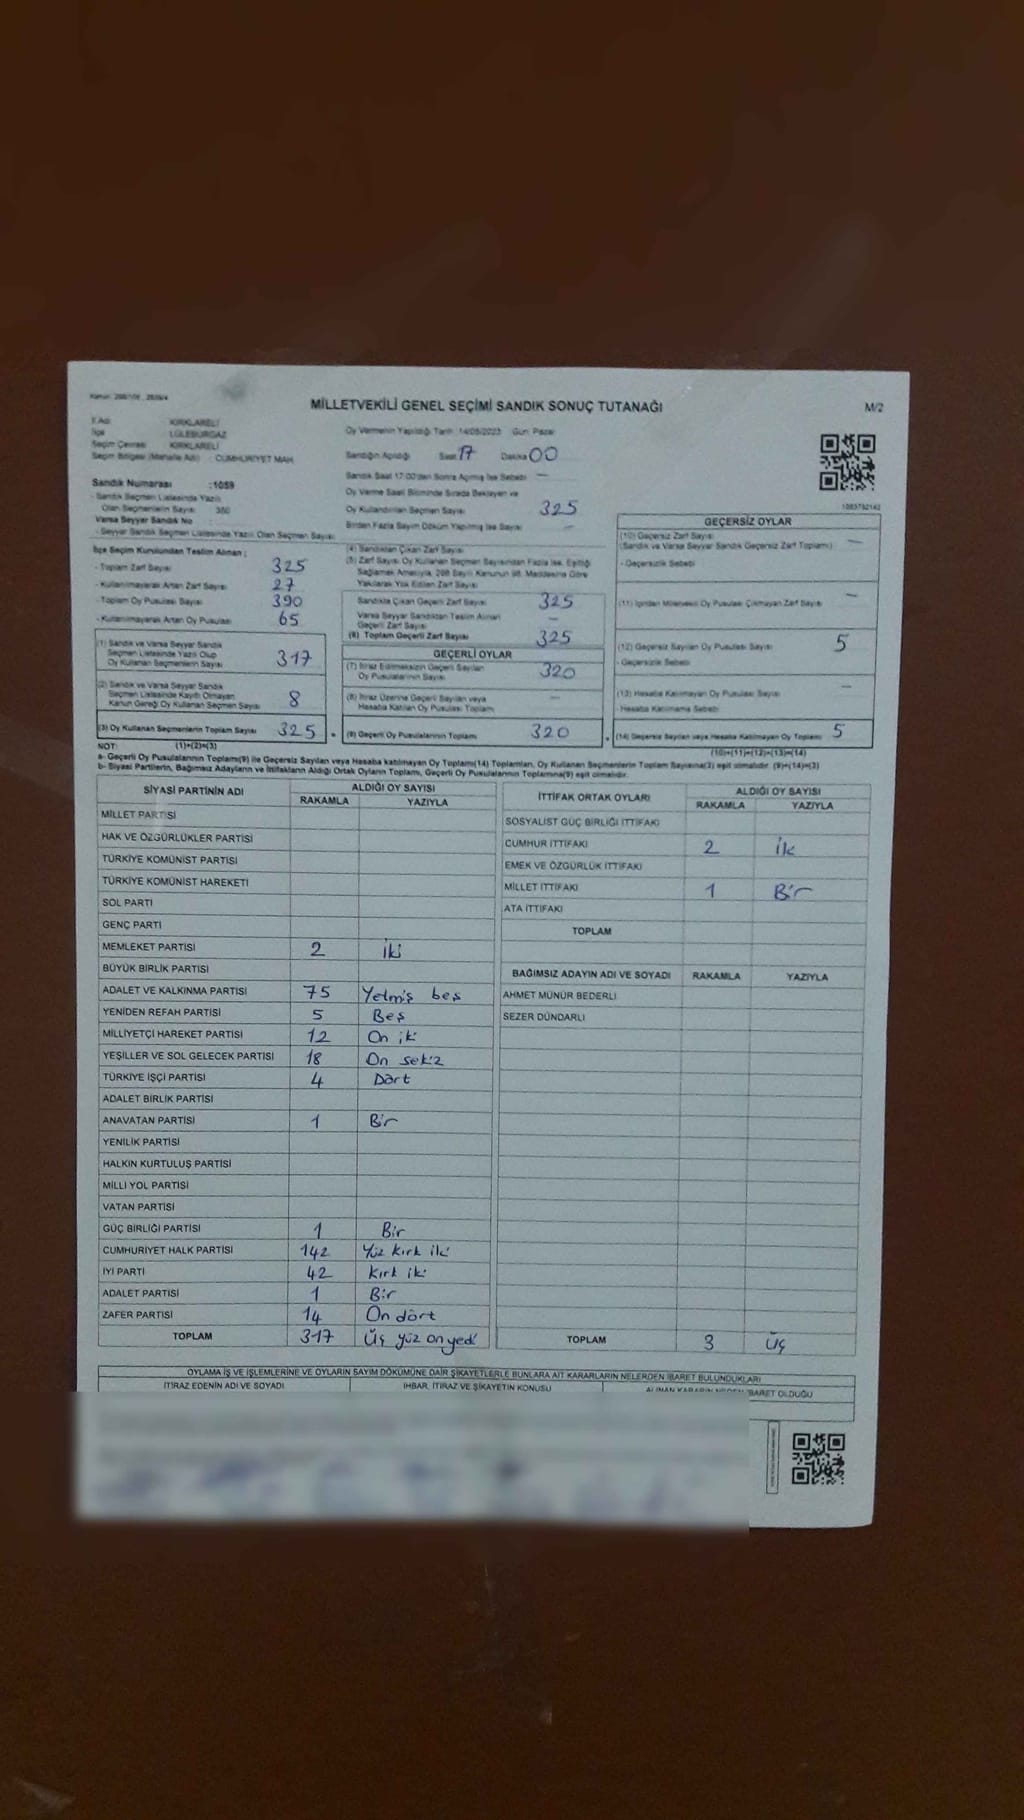 MİLLETVEKİLİ GENEL SEÇİMİ SANDIK SONUÇ TUTANAĞI
M/2
İl Adı KIRKLARELİ
İlçe LÜLEBURGAZ
Seçim Çevresi KIRKLARELİ
Seçim Bölgesi (Mahalle Adı) : CUMHURİYET MAH.
Sandık Numarası :1059
- Sandık Seçmen Listesinde Yazılı
Olan Seçmenlerin Sayısı 380
Varsa Seyyar Sandık No
- Seyyar Sandık Seçmen Listesinde Yazılı Olan Seçmen Sayısı
Oy Vermenin Yapıldığı Tarih 14/05/2023 Gün Pazar
Sandığın Açıldığı Saat 17 Dakika 00
Sandık Saat 17:00'den Sonra Açılmış İse Sebebi —
Oy Verme Saati Bitiminde Sırada Bekleyen ve
Oy Kullandırılan Seçmen Sayısı 325
Birden Fazla Sayım Döküm Yapılmış İse Sayısı —
İlçe Seçim Kurulundan Teslim Alınan ;
- Toplam Zarf Sayısı 325
- Kullanılmayarak Artan Zarf Sayısı 27
- Toplam Oy Pusulası Sayısı 390
- Kullanılmayarak Artan Oy Pusulası 65
(1) Sandık ve Varsa Seyyar Sandık
Seçmen Listesinde Yazılı Olup
Oy Kullanan Seçmenlerin Sayısı 317
(2) Sandık ve Varsa Seyyar Sandık
Seçmen Listesinde Kayıtlı Olmayan
Kanun Gereği Oy Kullanan Seçmen Sayısı 8
(3) Oy Kullanan Seçmenlerin Toplam Sayısı 325
(4) Sandıktan Çıkan Zarf Sayısı
(5) Zarf Sayısı Oy Kullanan Seçmen Sayısından Fazla İse, Eşitliği
Sağlamak Amacıyla, 298 Sayılı Kanunun 98. Maddesine Göre
Yakılarak Yok Edilen Zarf Sayısı
Sandıkta Çıkan Geçerli Zarf Sayısı 325
Varsa Seyyar Sandıktan Teslim Alınan
Geçerli Zarf Sayısı —
(6) Toplam Geçerli Zarf Sayısı 325
GEÇERLİ OYLAR
(7) İtiraz Edilmeksizin Geçerli Sayılan
Oy Pusulalarının Sayısı 320
(8) İtiraz Üzerine Geçerli Sayılan veya
Hesaba Katılan Oy Pusulası Toplamı —
(9) Geçerli Oy Pusulalarının Toplamı 320
GEÇERSİZ OYLAR
(10) Geçersiz Zarf Sayısı
(Sandık ve Varsa Seyyar Sandık Geçersiz Zarf Toplamı) —
- Geçersizlik Sebebi
(11) İçinden Milletvekili Oy Pusulası Çıkmayan Zarf Sayısı —
(12) Geçersiz Sayılan Oy Pusulası Sayısı 5
- Geçersizlik Sebebi
(13) Hesaba Katılmayan Oy Pusulası Sayısı —
- Hesaba Katılmama Sebebi
(14) Geçersiz Sayılan veya Hesaba Katılmayan Oy Toplamı 5
NOT: (1)+(2)=(3)
(10)+(11)+(12)+(13)=(14)
a- Geçerli Oy Pusulalarının Toplamı(9) ile Geçersiz Sayılan veya Hesaba katılmayan Oy Toplamı(14) Toplamları, Oy Kullanan Seçmenlerin Toplam Sayısına(3) eşit olmalıdır. (9)+(14)=(3)
b- Siyasi Partilerin, Bağımsız Adayların ve İttifakların Aldığı Ortak Oyların Toplamı, Geçerli Oy Pusulalarının Toplamına(9) eşit olmalıdır.
SİYASİ PARTİNİN ADI ALDIĞI OY SAYISI
RAKAMLA YAZIYLA
MİLLET PARTİSİ
HAK VE ÖZGÜRLÜKLER PARTİSİ
TÜRKİYE KOMÜNİST PARTİSİ
TÜRKİYE KOMÜNİST HAREKETİ
SOL PARTİ
GENÇ PARTİ
MEMLEKET PARTİSİ 2 iki
BÜYÜK BİRLİK PARTİSİ
ADALET VE KALKINMA PARTİSİ 75 Yetmiş beş
YENİDEN REFAH PARTİSİ 5 Beş
MİLLİYETÇİ HAREKET PARTİSİ 12 On iki
YEŞİLLER VE SOL GELECEK PARTİSİ 18 On sekiz
TÜRKİYE İŞÇİ PARTİSİ 4 Dört
ADALET BİRLİK PARTİSİ
ANAVATAN PARTİSİ 1 Bir
YENİLİK PARTİSİ
HALKIN KURTULUŞ PARTİSİ
MİLLİ YOL PARTİSİ
VATAN PARTİSİ
GÜÇ BİRLİĞİ PARTİSİ 1 Bir
CUMHURİYET HALK PARTİSİ 142 Yüz kırk iki
İYİ PARTİ 42 Kırk iki
ADALET PARTİSİ 1 Bir
ZAFER PARTİSİ 14 On dört
TOPLAM 317 Üç yüz on yedi
İTTİFAK ORTAK OYLARI ALDIĞI OY SAYISI
RAKAMLA YAZIYLA
SOSYALİST GÜÇ BİRLİĞİ İTTİFAKI
CUMHUR İTTİFAKI 2 İki
EMEK VE ÖZGÜRLÜK İTTİFAKI
MİLLET İTTİFAKI 1 Bir
ATA İTTİFAKI
TOPLAM
BAĞIMSIZ ADAYIN ADI VE SOYADI RAKAMLA YAZIYLA
AHMET MÜNÜR BEDERLİ
SEZER DÜNDARLI
TOPLAM 3 Üç
OYLAMA İŞ VE İŞLEMLERİNE VE OYLARIN SAYIM DÖKÜMÜNE DAİR ŞİKAYETLERLE BUNLARA AİT KARARLARIN NELERDEN İBARET BULUNDUKLARI
İTİRAZ EDENİN ADI VE SOYADI İHBAR, İTİRAZ VE ŞİKAYETİN KONUSU ALINAN KARARIN NEDEN İBARET OLDUĞU